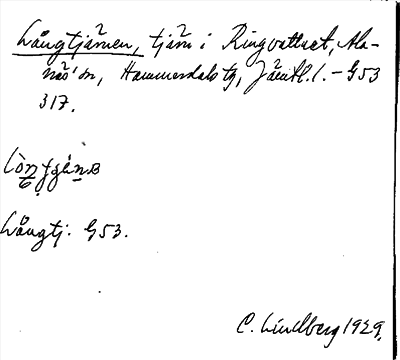 Långtjärnen, tjärn i Ringvattnet, Ala-
näs' sn, Hammerdals tg, Jämtl. l. - G53
317.
Långtj. G53.
C. Lindberg 1929.